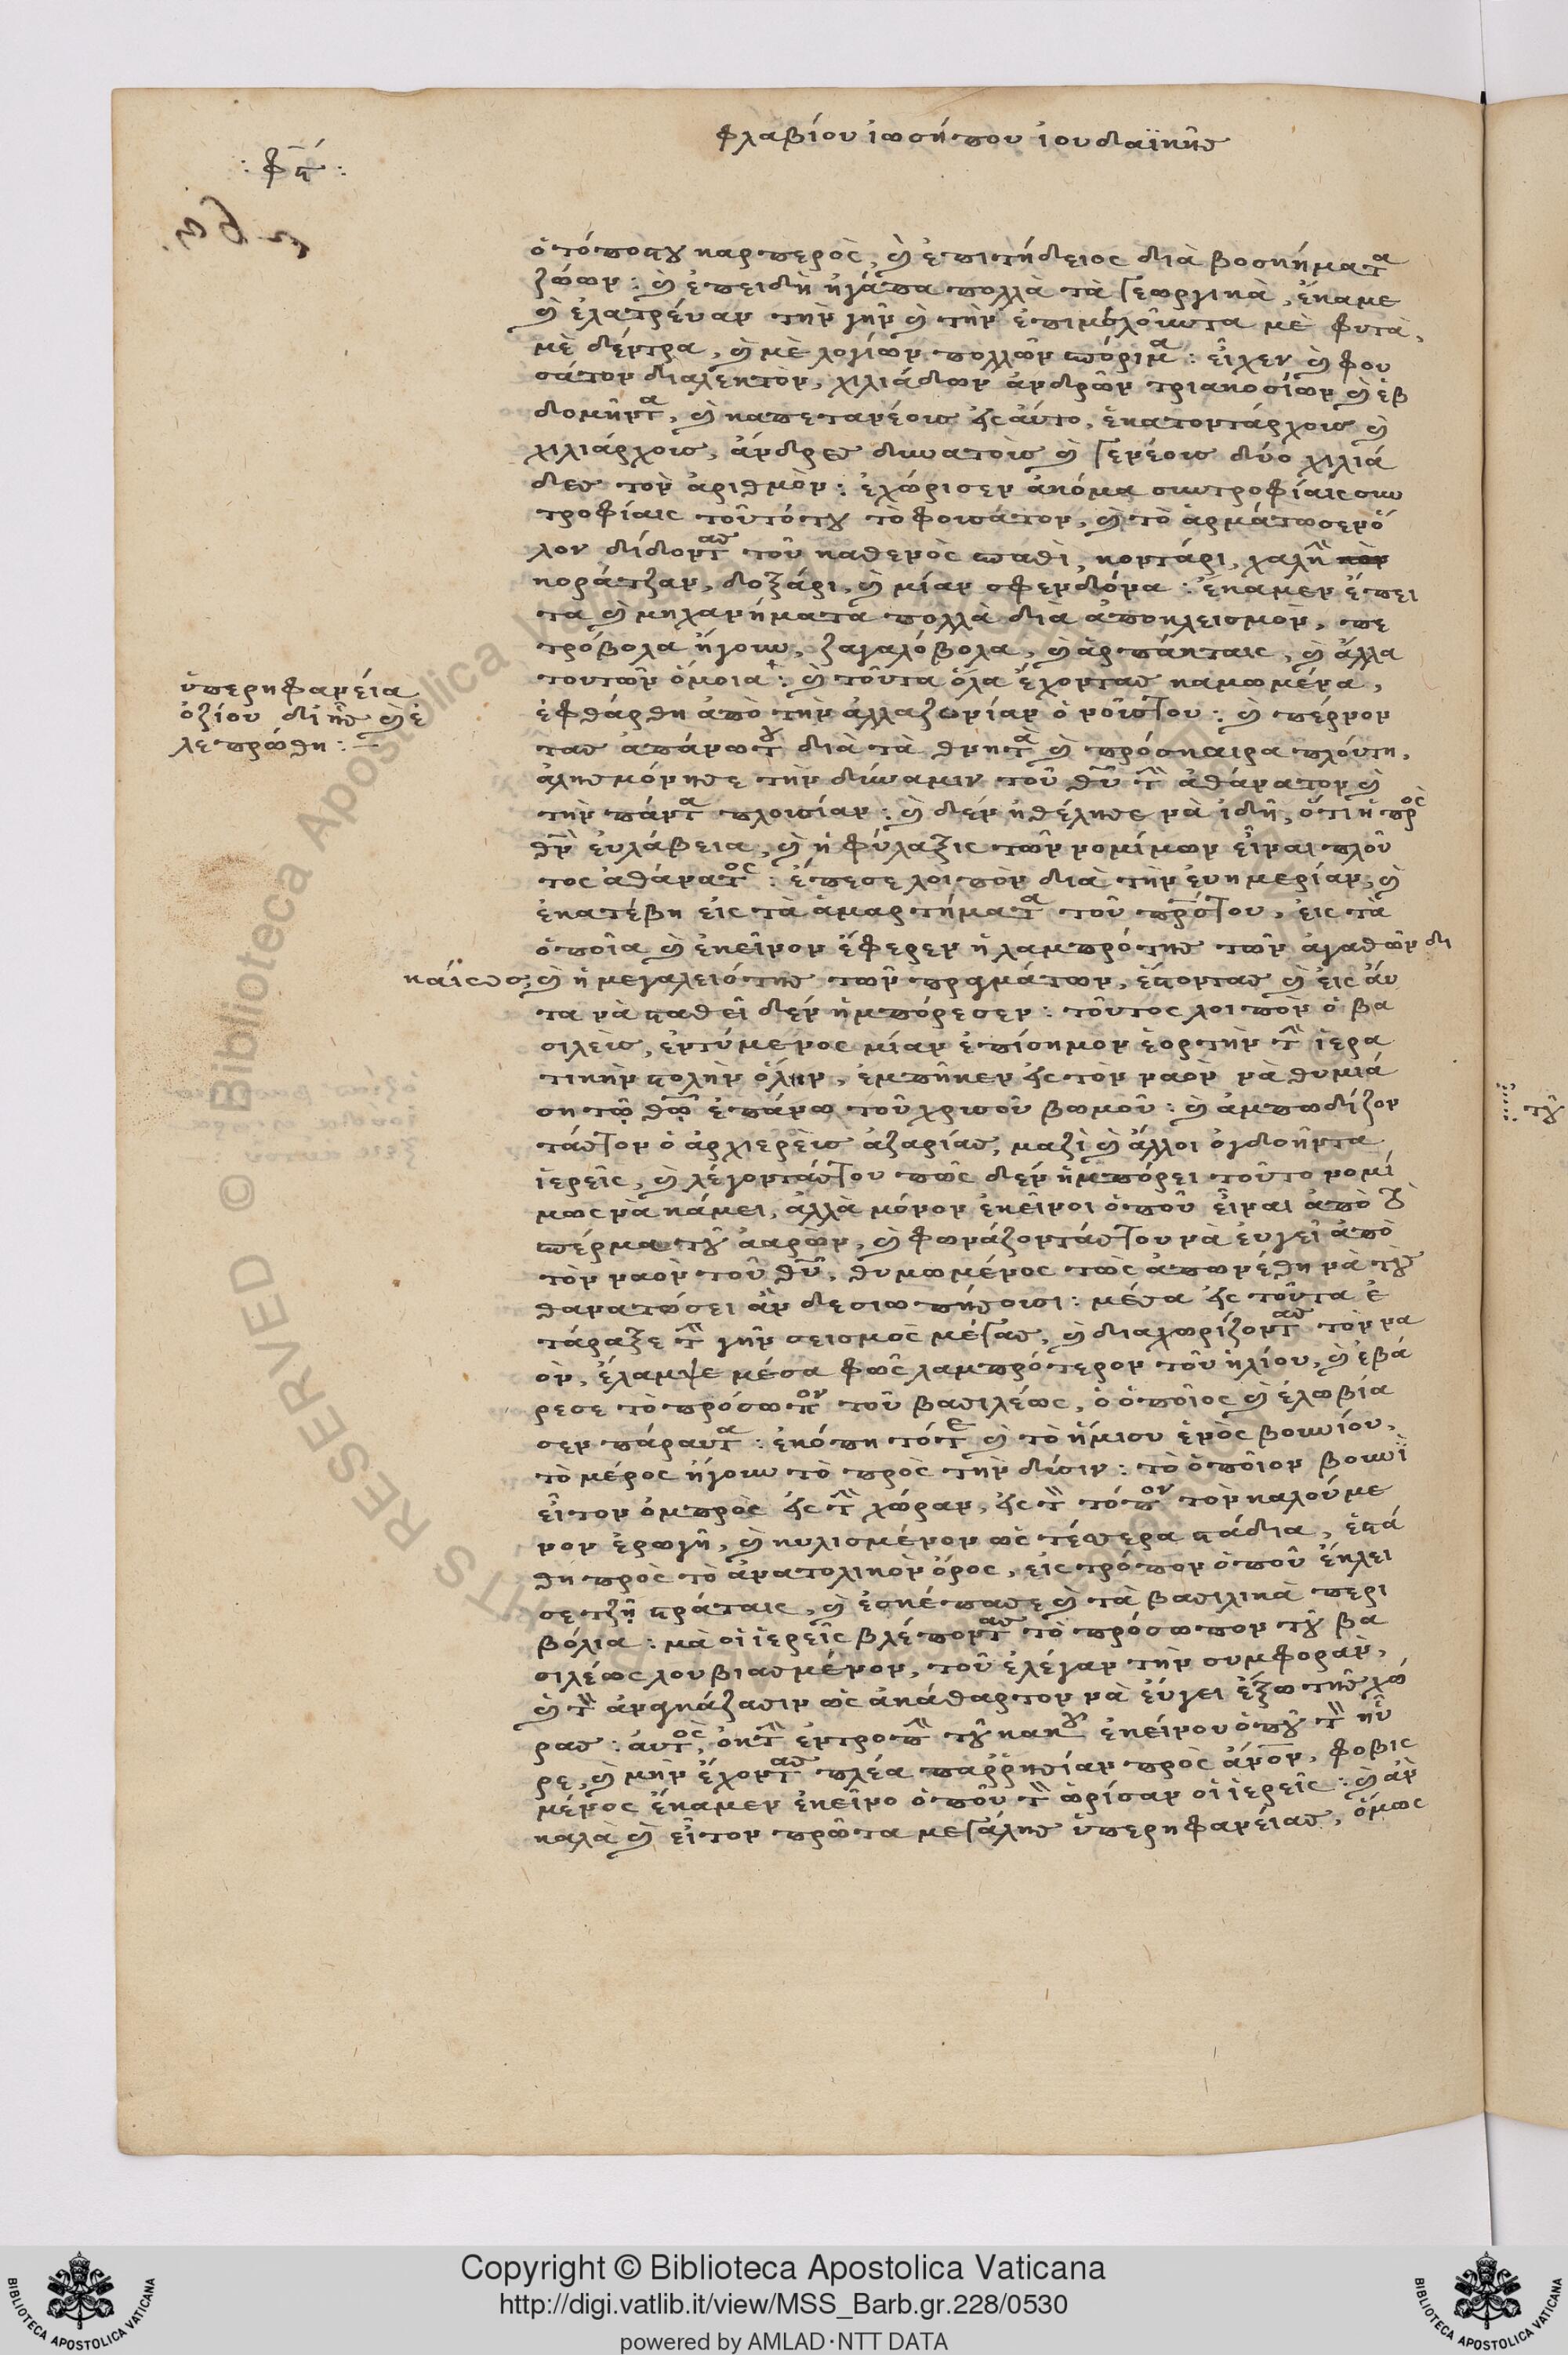 φλαβίου ἰωσήπου ἰουδαϊκῆς
ὁ τόποςτου καρπερὸς, καὶ ἐπιτήδειος διὰ βοσκήματα
ζώων: καὶ ἐπειδὴ ἠγάπα πολλὰ τὰ γεωργικὰ, ἔκαμε
καὶ ἐλατρεύαν τὴν γῆν καὶ τὴν μὲ φυτὰ,
μὲ δέντρα, καὶ μὲ λογιῶν πολλῶν σπόριμα: εἶχεν καὶ φου
σάτον διαλεκτὸν, χιλιάδων ἀνδρῶν τριακοσίων καὶ ἑβ
δομῆντα, καὶ καπετανέους εἰς αὐτο, ἑκατοντάρχους καὶ
χιλιάρχους, ἄνδρες δυνατοὺς καὶ γενέους δύο χιλιά
δες τὸν ἀριθμὸν: ἐχώρισεν ἀκόμα συντροφίαις συν
τροφίαις τοῦτότου τὸ φουσάτον, καὶ τὸ ἁρμάτωσεν ὅ
λον δίδοντας τοῦ καθενὸς σπαθὶ, κοντάρι, χαλκῆν
κοράτζαν, δοξάρι, καὶ μίαν σφενδόνα: ἔκαμεν ἔπει
τα καὶ μηχανήματα πολλὰ διὰ ἀποκλεισμὸν, πε
τρόβολα ἤγουν, ζαγαλόβολα, καὶ ἁρπάκταις, καὶ ἄλλα
τουτῶν ὅμοια: καὶ τοῦτα ὅλα ἔχοντας καμωμένα,
ἐφθάρθη ἀπὸ τὴν ἀλλαζονίαν ὁ νοῦςτου: καὶ πέρνον
τας ἀπάνωτου διὰ τὰ θνητὰ καὶ πρόσκαιρα πλούτη,
ἀλησμόνησε τὴν δύναμιν τοῦ θεοῦ τὴν ἀθάνατον καὶ
τὴν πάντα πλουσίαν: καὶ δεν ἠθέλησε νὰ ἰδῆ, ὅτι ἡ πρὸς
θεὸν εὐλάβεια, καὶ ἡ φύλαξις τῶν νομίμων εἶναι πλοῦ
τος ἀθάνατος: ἔπεσε λοιπὸν διὰ τὴν εὐημερίαν, καὶ
ἐκατέβη εἰς τὰ ἁμαρτήματα τοῦ πατρόςτου, εἰς τὰ
ὁποῖα καὶ ἐκεῖνον ἔφερεν ἡ λαμπρότης τῶν ἀγαθῶν δι
καίως, καὶ ἡ μεγαλειότης τῶν πραγμάτων, ἔστοντας καὶ εἰς αὐ
τα νὰ σταθεῖ δεν ἠμπόρεσεν: τοῦτος λοιπὸν ὁ βα
σιλεὺς, ἐντύμενος μίαν ἐπίσημον ἑορτὴν τὴν ἱερα
τικὴν στολὴν ὅλην, ἐμπῆκεν εἰς τὸν ναὸν νὰ θυμιά
ση τῷ θεῷ ἐπάνω τοῦ χρυσοῦ βωμοῦ: καὶ ἀμπωδίζον
τάςτον ὁ ἀρχιερεὺς ἀζαρίας, μαζὶ καὶ ἄλλοι ὀγδοῆντα
ἱερεῖς, καὶ λέγοντάςτου πῶς δεν ἠμπόρει τοῦτο νομί
μως νὰ κάμει, ἀλλὰ μόνον ἐκεῖνοι ὁποῦ εἶναι ἀπὸ τὸ
σπέρμα τοῦ ἀαρὼν, καὶ φωνάζοντάςτου νὰ εὐγεῖ ἀπὸ
τὸν ναὸν τοῦ θεοῦ, θυμωμένος τῶς ἀπωκρέθη νὰ τοὺς
θανατώσει ἂν δε σιωπήσουσι: μέσα εἰς τοῦτα ἐ
τάραξε τὴν γῆν σεισμὸς μέγας, καὶ διαχωρίζοντας τὸν να
ὸν, ἔλαμψε μέσα φῶς λαμπρότερον τοῦ ἡλίου, καὶ ἐβά
ρεσε τὸ πρόσωπον τοῦ βασιλέως, ὁ ὁποῖος καὶ ἐλωβία
σεν πάραυτα: ἐκόπη τότε καὶ τὸ ἥμισυ ἑνὸς βουνίου,
τὸ μέρος ἤγουν τὸ πρὸς τὴν δύσιν: τὸ ὁποῖον βουνὶ
εἶτον ὀμπρὸς εἰς τὴν χώραν, εἰς τὴν τόπον τὸν καλούμε
νον ἐρωγῆ, καὶ κυλισμένον ὡς τέσσερα στάδια, ἐστά
θη πρὸς τὸ ἀνατολικὸν ὄρος, εἰς τρόπον ὁποῦ ἔκλει
σε τζῆ στράταις, καὶ ἐσκέπασε καὶ τὰ βασιλικὰ περι
βόλια: μὰ οἱ ἱερεῖς βλέποντας τὸ πρόσωπον τοῦ βα
σιλέως λουβιασμένον, τοῦ ἐλέγαν τὴν συμφορὰν,
καὶ τὸν ἀναγκάζασιν ὡς ἀκάθαρτον νὰ εὔγει ἔξω τῆς χώ
ρας: αὐτὸς, ἐκ τὴν ἐντροπὴν τοῦ κακοῦ ἐκείνου ὁποῦ τὸν ηὗ
ρε, καὶ μὴν ἔχοντας πλέα παῤῥησίαν πρὸς φοβις
μένος ἔκαμεν ἐκεῖνο ὁποῦ τὸν ὡρίσαν οἱ ἱερεῖς: καὶ ἂν
καλὰ καὶ εἶτον πρῶτα μεγάλης ὑπερηφανείας, ὅμως
ὑπερηφανεία
ὀζίου δι ἧς καὶ ἐ
λεπρώθη: